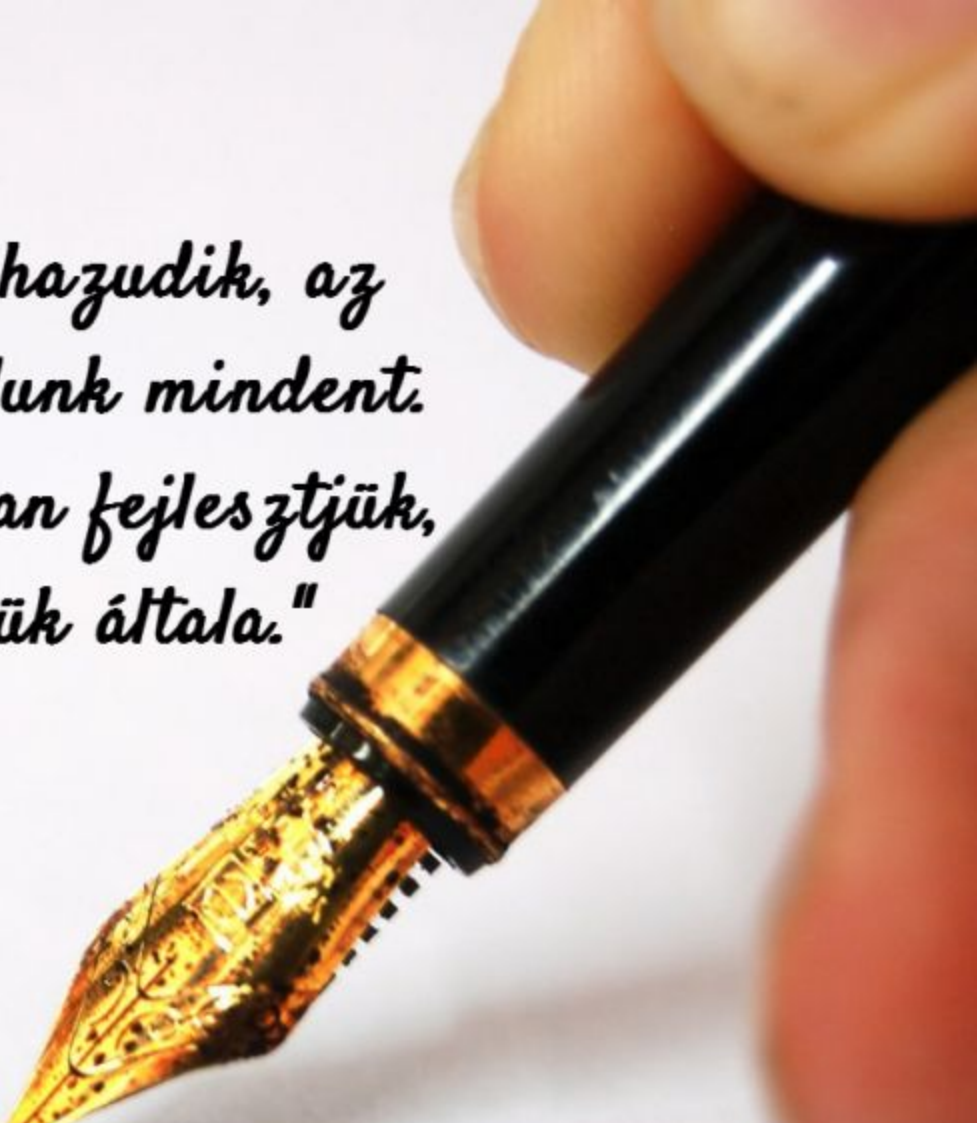 hazudik, az
mindent.
fejlesztjük,
általa."